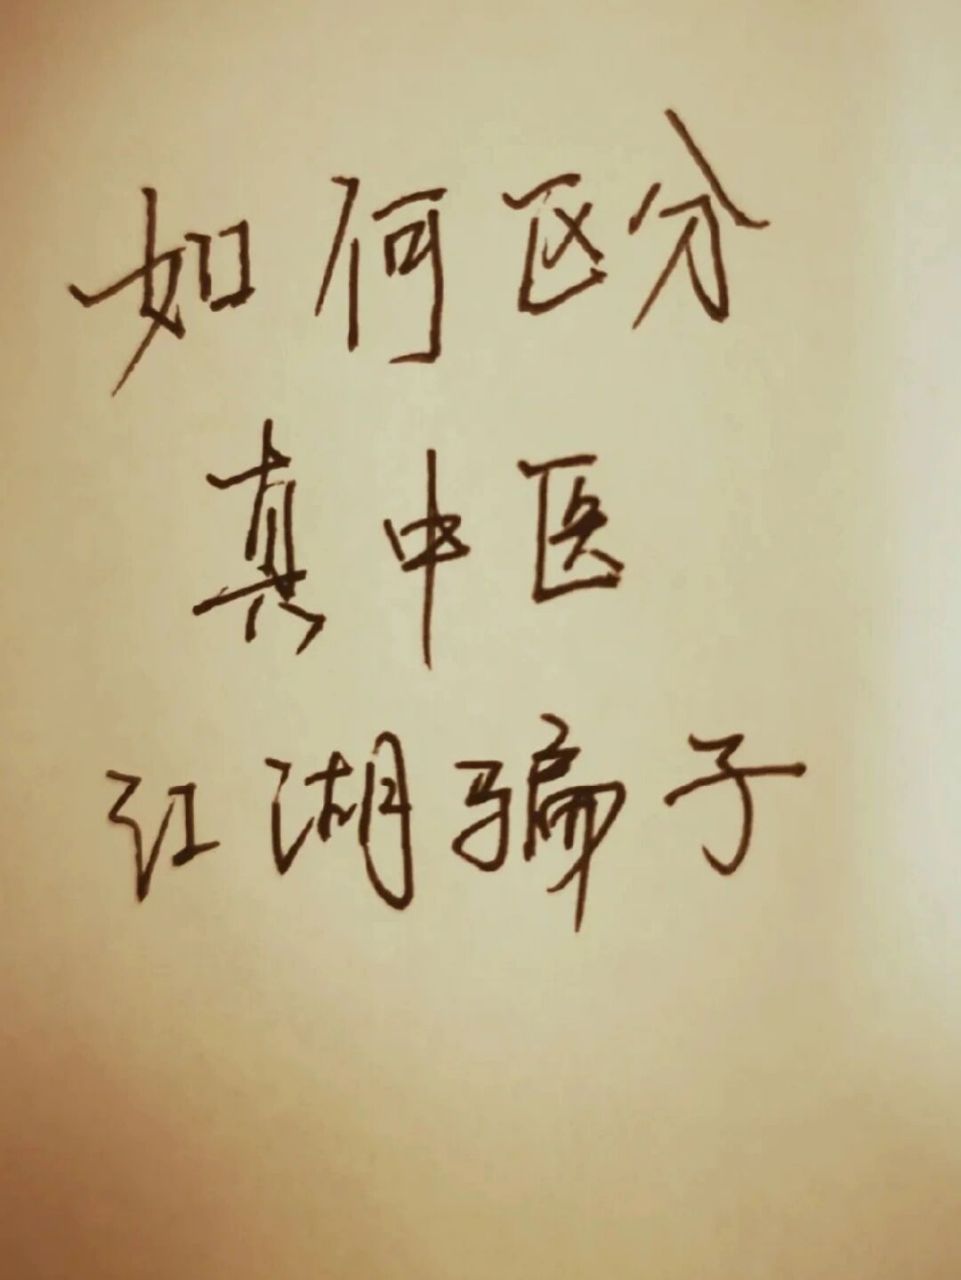 如何区分
真中医
江湖骗子